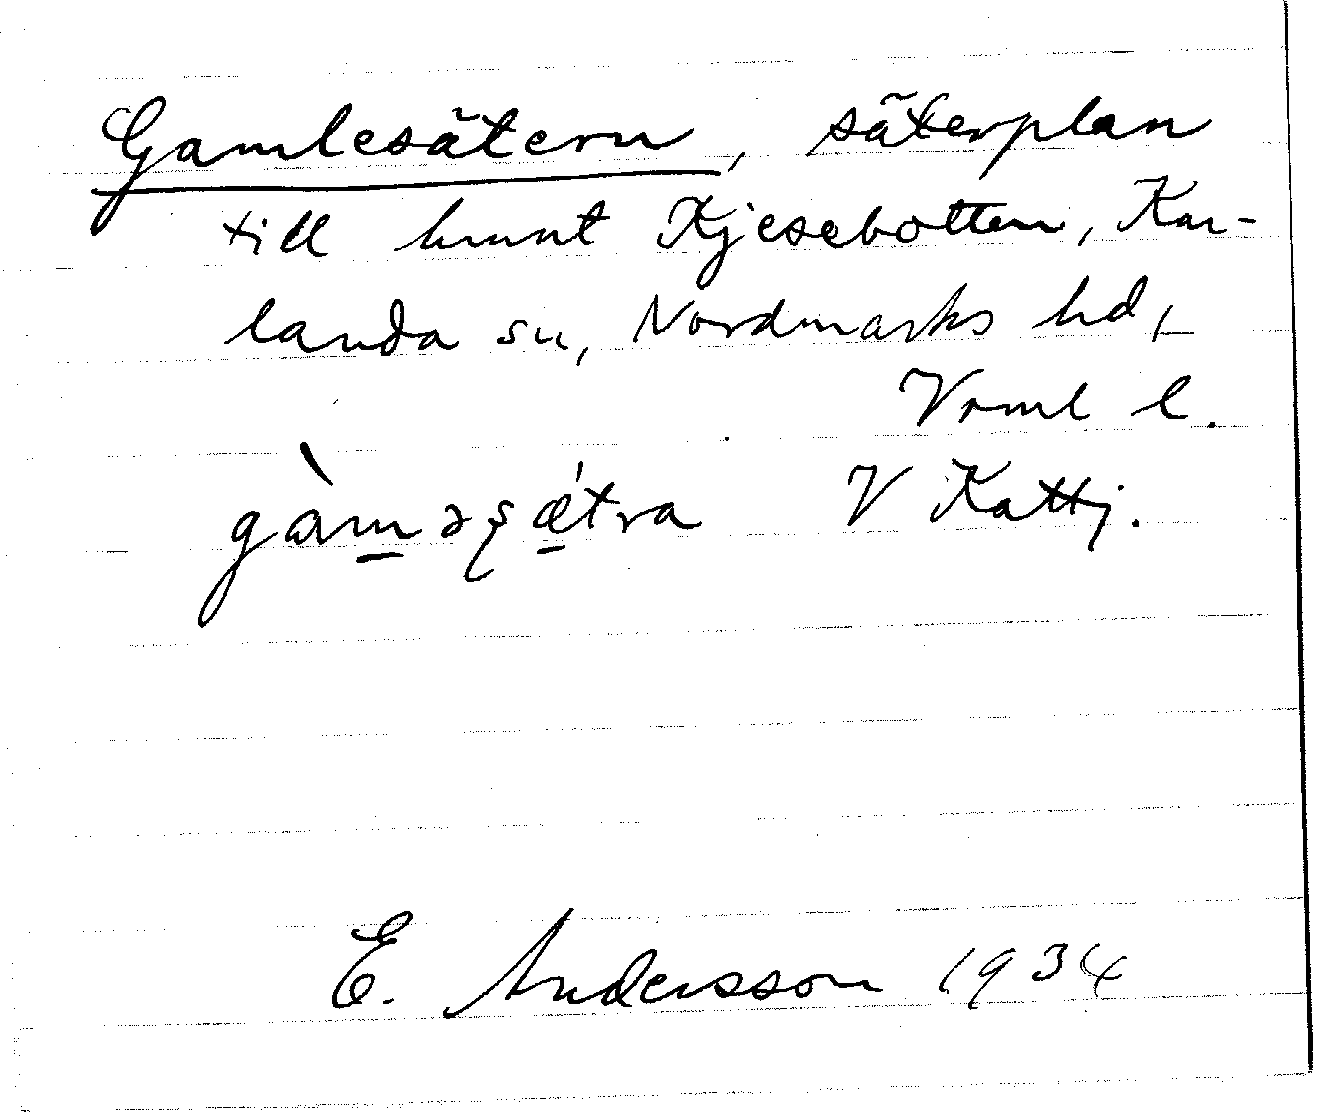 Gamlesätern, säterplan
till hmnt Kjesebotten, Kar-
landa sn, Nordmarks hd,
Vrml l.
gàməʂǽtra V Kattj.
E. Andersson 1934